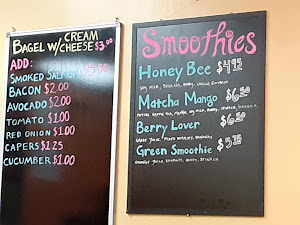 BAGEL W/ CREAM CHEESE $3.00
ADD:
SMOKED SALMON $5.00
BACON $2.00
AVOCADO $2.00
TOMATO $1.00
RED ONION $1.00
CAPERS $1.25
CUCUMBER $1.00
Smoothies
Honey Bee $4.95
Matcha Mango $6.50
Berry Lover $6.50
Green Smoothie $5.75